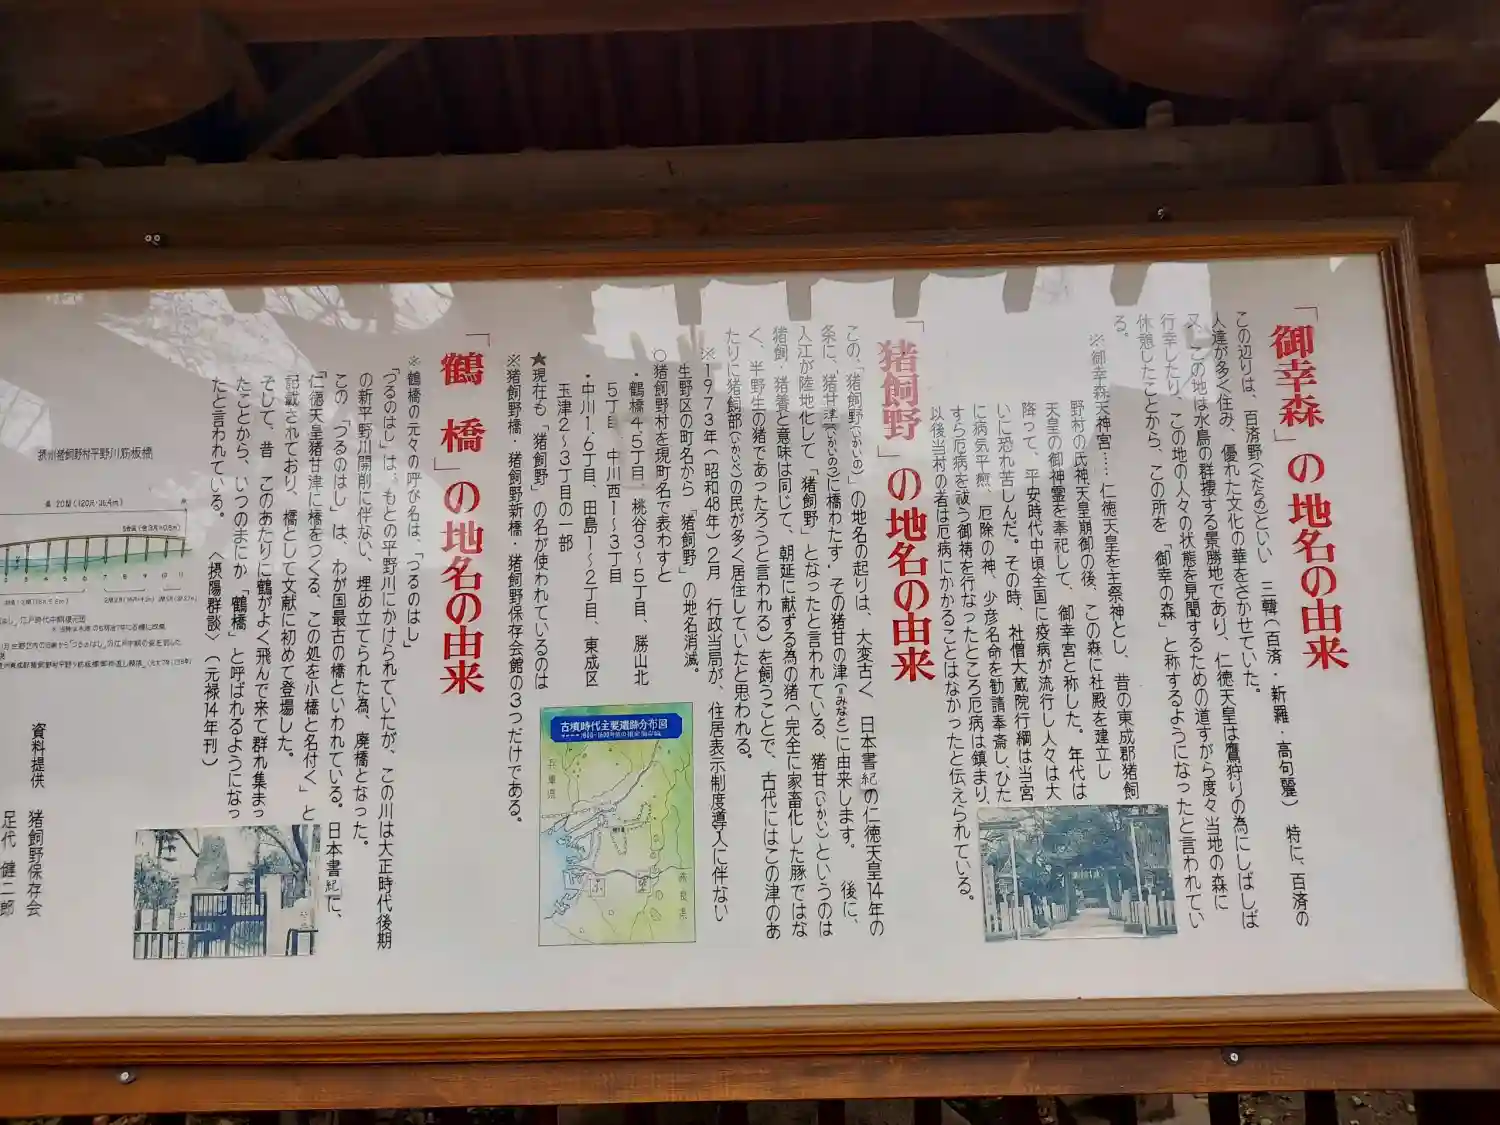 「御幸森」の地名の由来
この辺りは、百済野(くだらの)といい 三韓(百済・新羅・高句麗) 特に、百済の
人達が多く住み、優れた文化の華をさかせていた。
又、この地は水鳥の群捿する景勝地であり、仁徳天皇は鷹狩りの為にしばしば
行幸したり、この地の人々の状態を見聞するための道すがら度々当地の森に
休憩したことから、この所を「御幸の森」と称するようになったと言われてい
る。
※御幸森天神宮…… 仁徳天皇を主祭神とし、昔の東成郡猪飼
野村の氏神天皇崩御の後、この森に社殿を建立し
天皇の御神霊を奉祀して、御幸宮と称した。年代は
降って、平安時代中頃全国に疫病が流行し人々は大
いに恐れ苦しんだ。その時、社僧大蔵院行綱は当宮
に病気平癒、厄除の神、少彦名命を勧請奉斎し、ひた
すら厄病を祓う御祷を行なったところ厄病は鎮まり、
以後当村の者は厄病にかかることはなかったと伝えられている。
「猪飼野」の地名の由来
この、「猪飼野(いかいの)」の地名の起りは、大変古く 日本書紀の仁徳天皇14年の
条に、猪甘津(いかいのつ)に橋わたす、その猪甘の津(みなと)に由来します。 後に、
入江が陸地化して「猪飼野」となったと言われている、猪甘(いかい)というのは
猪飼・猪養と意味は同じて、朝廷に献ずる為の猪(完全に家畜化した豚ではな
く、半野生の猪であったろうと言われる)を飼うことで、古代にはこの津のあ
たりに猪飼部(いかいべ)の民が多く居住していたと思われる。
※1973年(昭和48年)2月 行政当局が、住居表示制度導入に伴ない
生野区の町名から「猪飼野」の地名消滅。
○猪飼野村を現町名で表わすと
・鶴橋4・5丁目 桃谷3〜5丁目、勝山北
5丁目 中川西1〜3丁目
・中川1・6丁目、田島1〜2丁目、東成区
玉津2〜3丁目の一部
★現在も「猪飼野」の名が使われているのは
※猪飼野橋・猪飼野新橋・猪飼野保存会館の3つだけである。
古墳時代主要遺跡分布図
兵庫県
奈良県
「鶴橋」の地名の由来
※鶴橋の元々の呼び名は、「つるのはし」
「つるのはし」は、もとの平野川にかけられていたが、この川は大正時代後期
の新平野川開削に伴ない、埋め立てられた為、廃橋となった。
この、「つるのはし」は、わが国最古の橋といわれている。日本書紀に、
「仁徳天皇猪甘津に橋をつくる、この処を小橋と名付く」と
記載されており、橋として文献に初めて登場した。
そして、昔 このあたりに鶴がよく飛んで来て群れ集まっ
たことから、いつのまにか「鶴橋」と呼ばれるようになっ
たと言われている。 〈摂陽群談〉(元禄14年刊)
摂州猪飼野村平野川筋板橋
長 20間(120尺・36.4m)
2 3 4 5 6 7 8 9 10 11
資料提供 猪飼野保存会
足代 健二郎